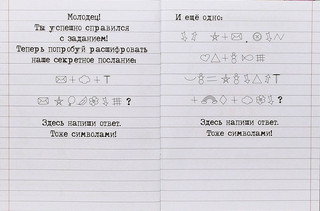 Молодец!
Ты успешно справился
с заданием!
Теперь попробуй расшифровать
наше секретное послание:
Здесь напиши ответ.
Тоже символами!
И ещё одно:
Здесь напиши ответ.
Тоже символами!